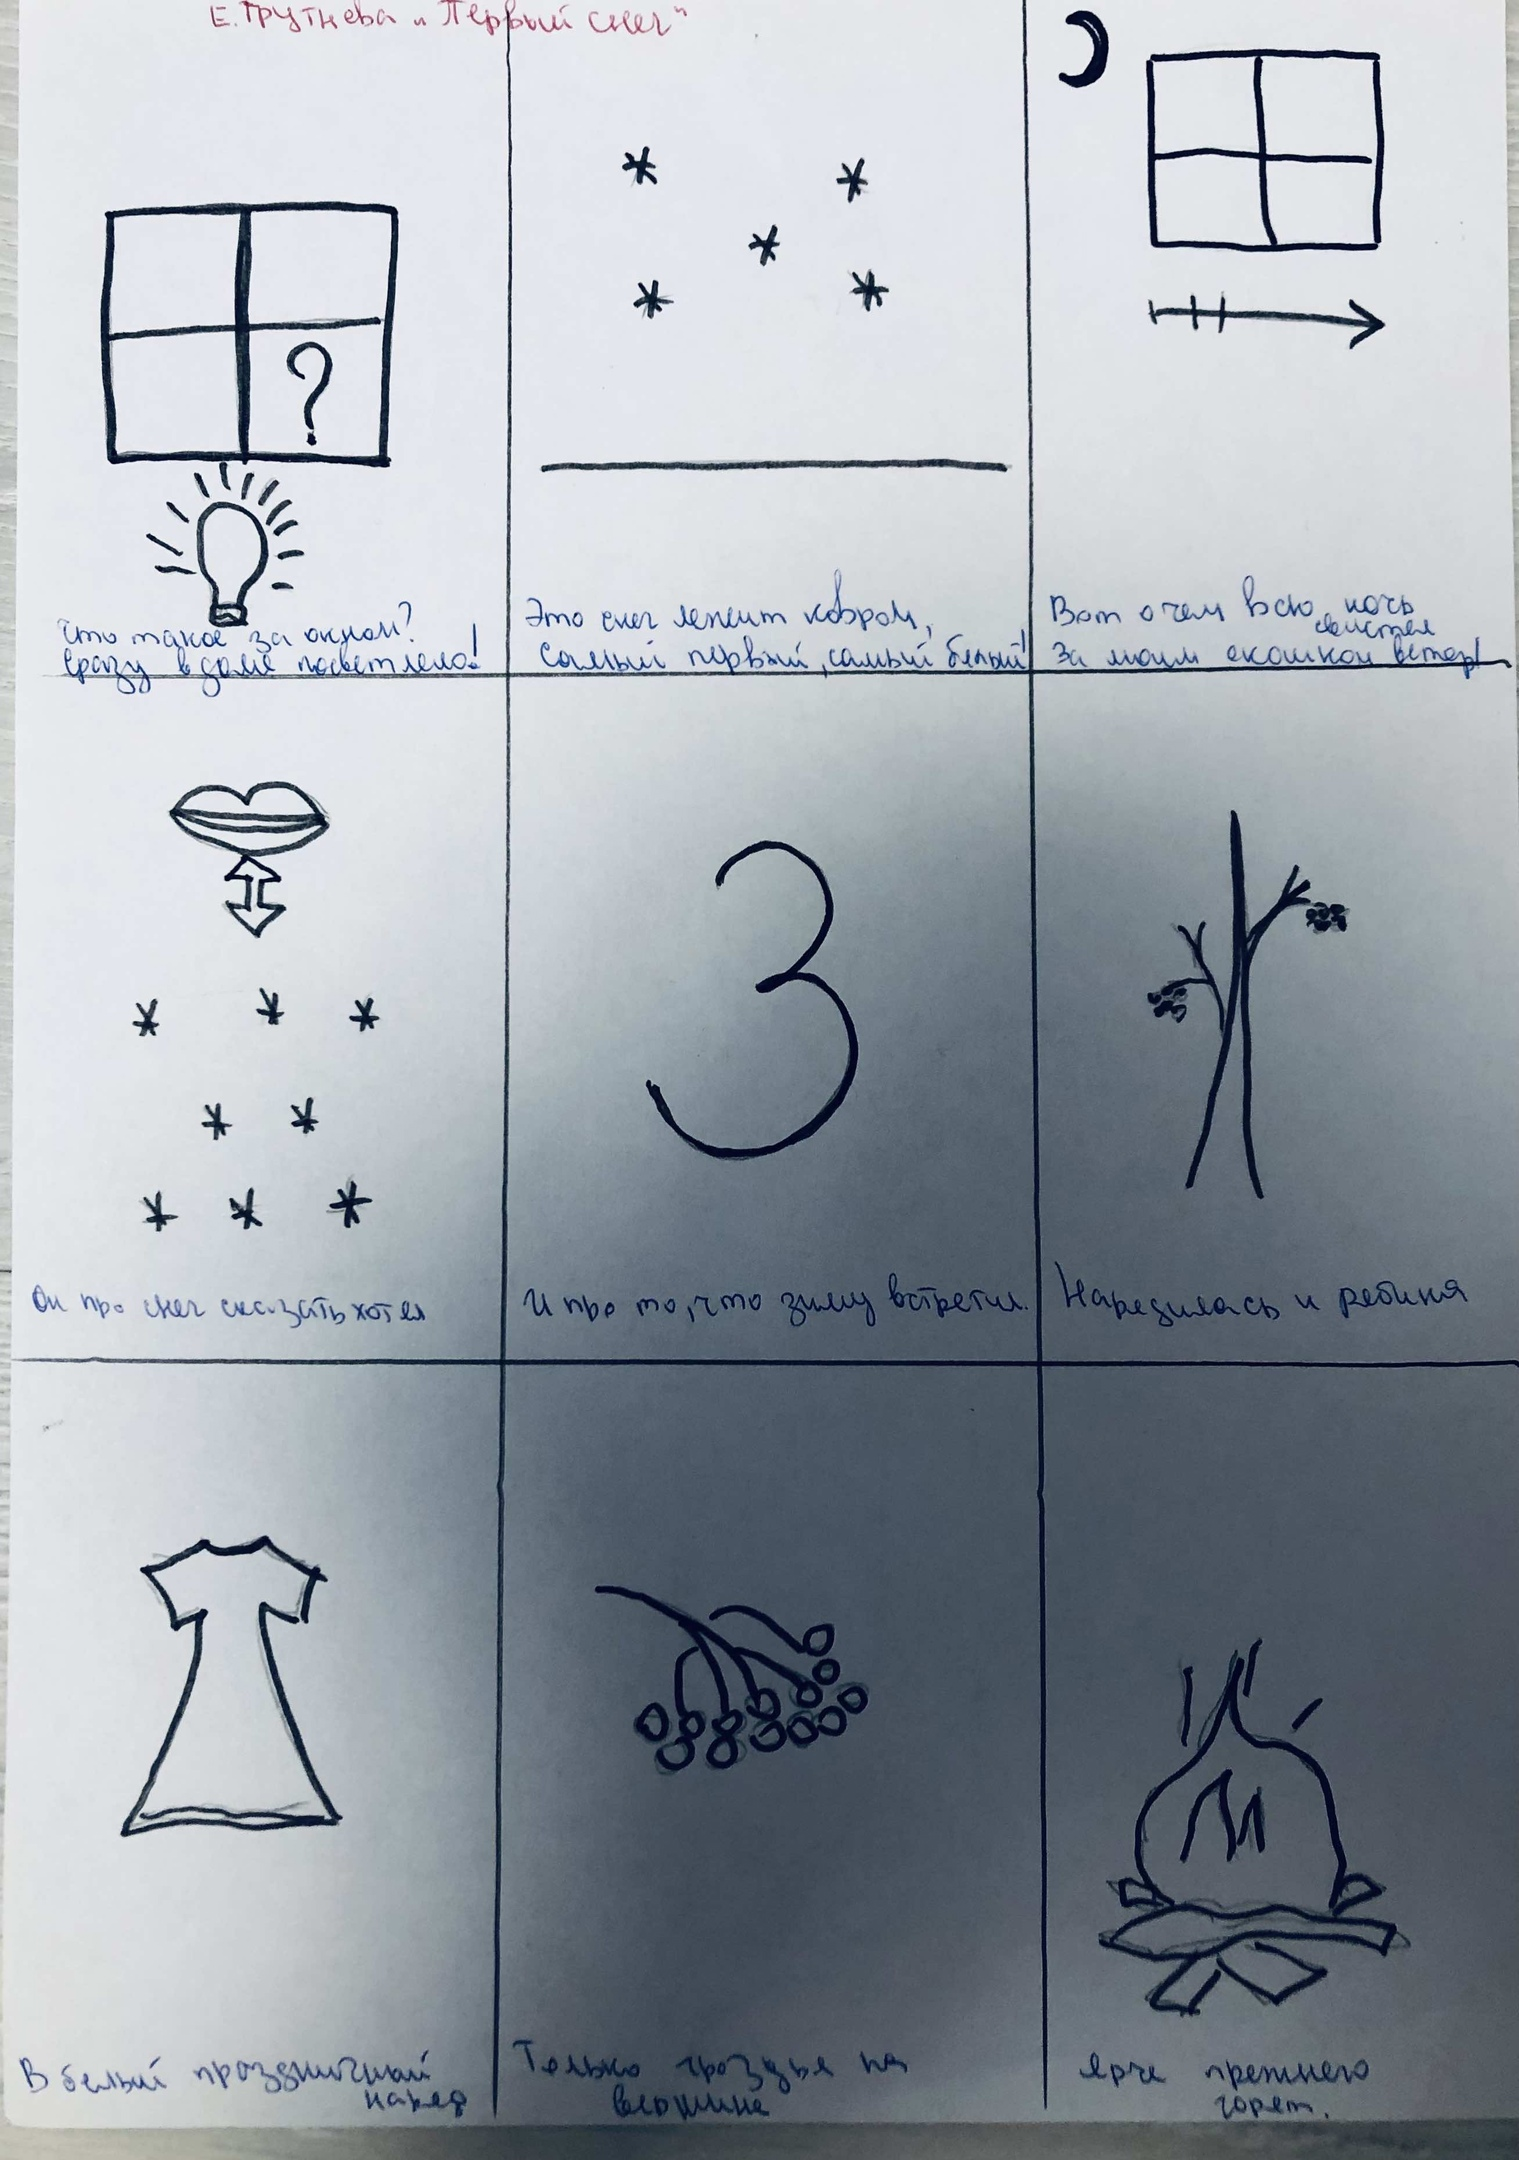 Е. Трутнева „Первый снег"
?
Что такое за окном?
Сразу в доме посветлело!
Это снег лежит ковром,
Самый первый, самый белый!
Вот о чем всю ночь
свистел
За моим окошком ветер!
Он про снег сказать хотел
И про то, что зиму встретил.
3
Нарядилась и рябина
В белый праздничный
наряд
Только гроздья на
вершине
Ярче прежнего
горят.